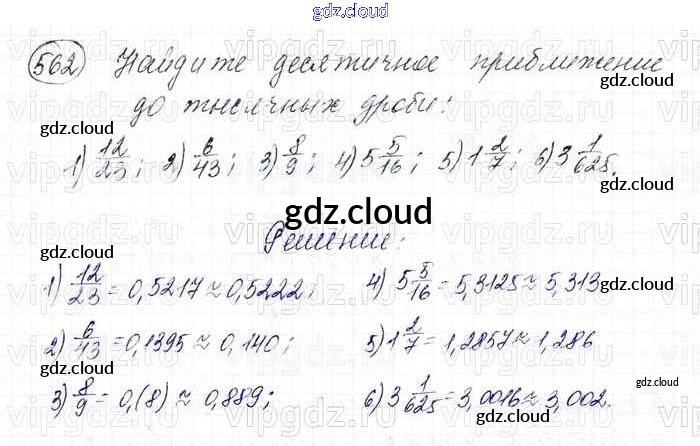 gdz.cloud
562 Найдите десятичное приближение
до тысячных дроби:
gdz.cloud
1) 12/23; 2) 6/43; 3) 8/9; 4) 5 5/16; 5) 1 2/7; 6) 3 1/625.
gdz.cloud
gdz.cloud
Решение:
gdz.cloud
1) 12/23 = 0,5217 ≈ 0,5222; 4) 5 5/16 = 5,3125 ≈ 5,313
gdz.cloud
2) 6/43 = 0,1395 ≈ 0,140; 5) 1 2/7 = 1,2857 ≈ 1,286
gdz.cloud
3) 8/9 = 0,(8) ≈ 0,889; 6) 3 1/625 = 3,0016 ≈ 3,002.
gdz.cloud
gdz.cloud
gdz.cloud